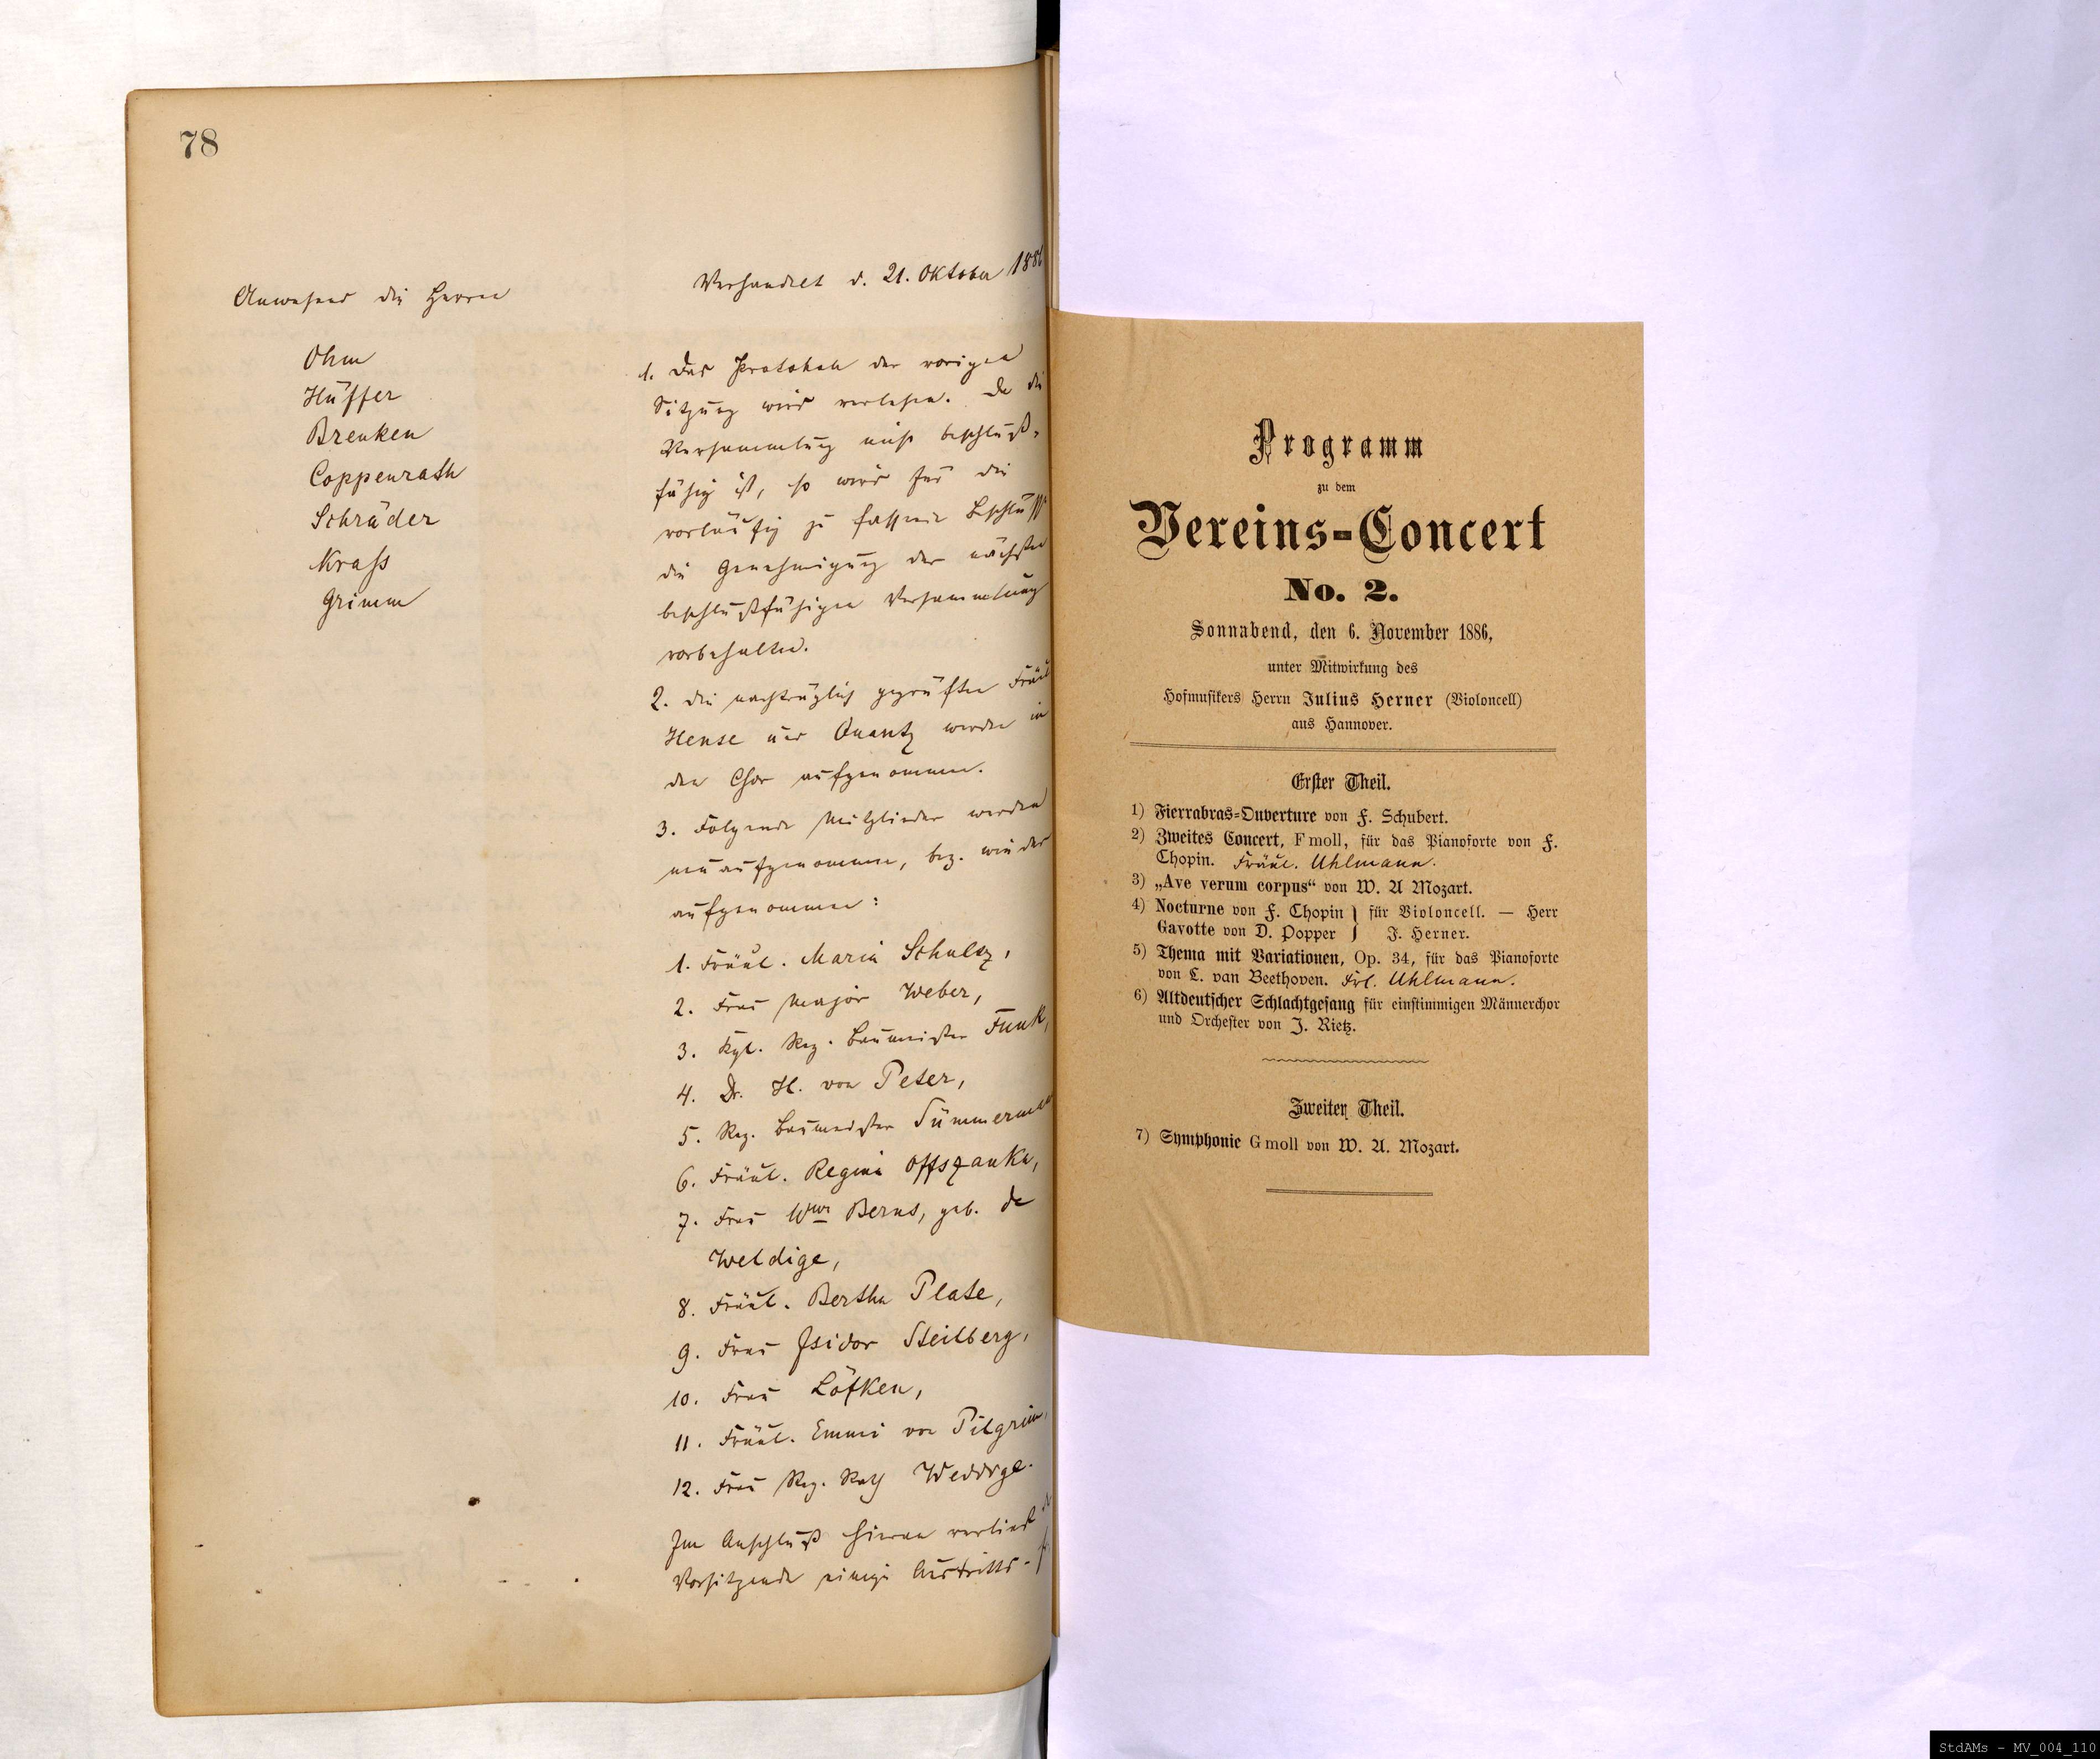 78
Anwesend die Herren
Ohm
Hüffer
Brenken
Coppenrath
Schräder
Krass
Grimm
Verhandelt d. 21. Oktober 188
1. Das Protokoll der vorigen
Sitzung wird verlesen. Da die
Versammlung nicht beschluß-
fähig ist, so wird für die
vorläufig zu fassenden Beschlüsse
die Genehmigung der nächsten
beschlußfähigen Versammlung
vorbehalten.
2. Die nachträglich geprüften Fräul
Hense und Quantz werden in
den Chor aufgenommen.
3. Folgende Mitglieder werden
neu aufgenommen, bez. wieder
aufgenommen:
1. Fräul. Maria Schulz,
2. Frau Major Weber,
3. Kgl. Reg. Baumeister Funk,
4. Dr. H. von Peter,
5. Reg. Baumeister Sümmermann
6. Fräul. Regina Offszanka,
7. Frau Wwe Berns, geb. de
Weldige,
8. Fräul. Bertha Plate,
9. Frau Isidor Steilberg,
10. Frau Löfken,
11. Fräul. Emmi von Pilgrim,
12. Frau Reg. Rath Weddige.
Im Anschluß hieran verliest
Vorsitzende einige Austritts-
Programm
zu dem
Vereins-Concert
No. 2.
Sonnabend, den 6. November 1886,
unter Mitwirkung des
Hofmusikers Herrn Julius Herner (Violoncell)
aus Hannover.
Erster Theil.
1) Fierrabras-Ouverture von F. Schubert.
2) Zweites Concert, F moll, für das Pianoforte von F.
Chopin. Fräul. Uhlmann.
3) „Ave verum corpus“ von W. A Mozart.
4) Nocturne von F. Chopin } für Violoncell. — Herr
Gavotte von D. Popper } J. Herner.
5) Thema mit Variationen, Op. 34, für das Pianoforte
von L. van Beethoven. Frl. Uhlmann.
6) Altdeutscher Schlachtgesang für einstimmigen Männerchor
und Orchester von J. Rietz.
Zweiter Theil.
7) Symphonie G moll von W. A. Mozart.
StdAMs - MV_004_110